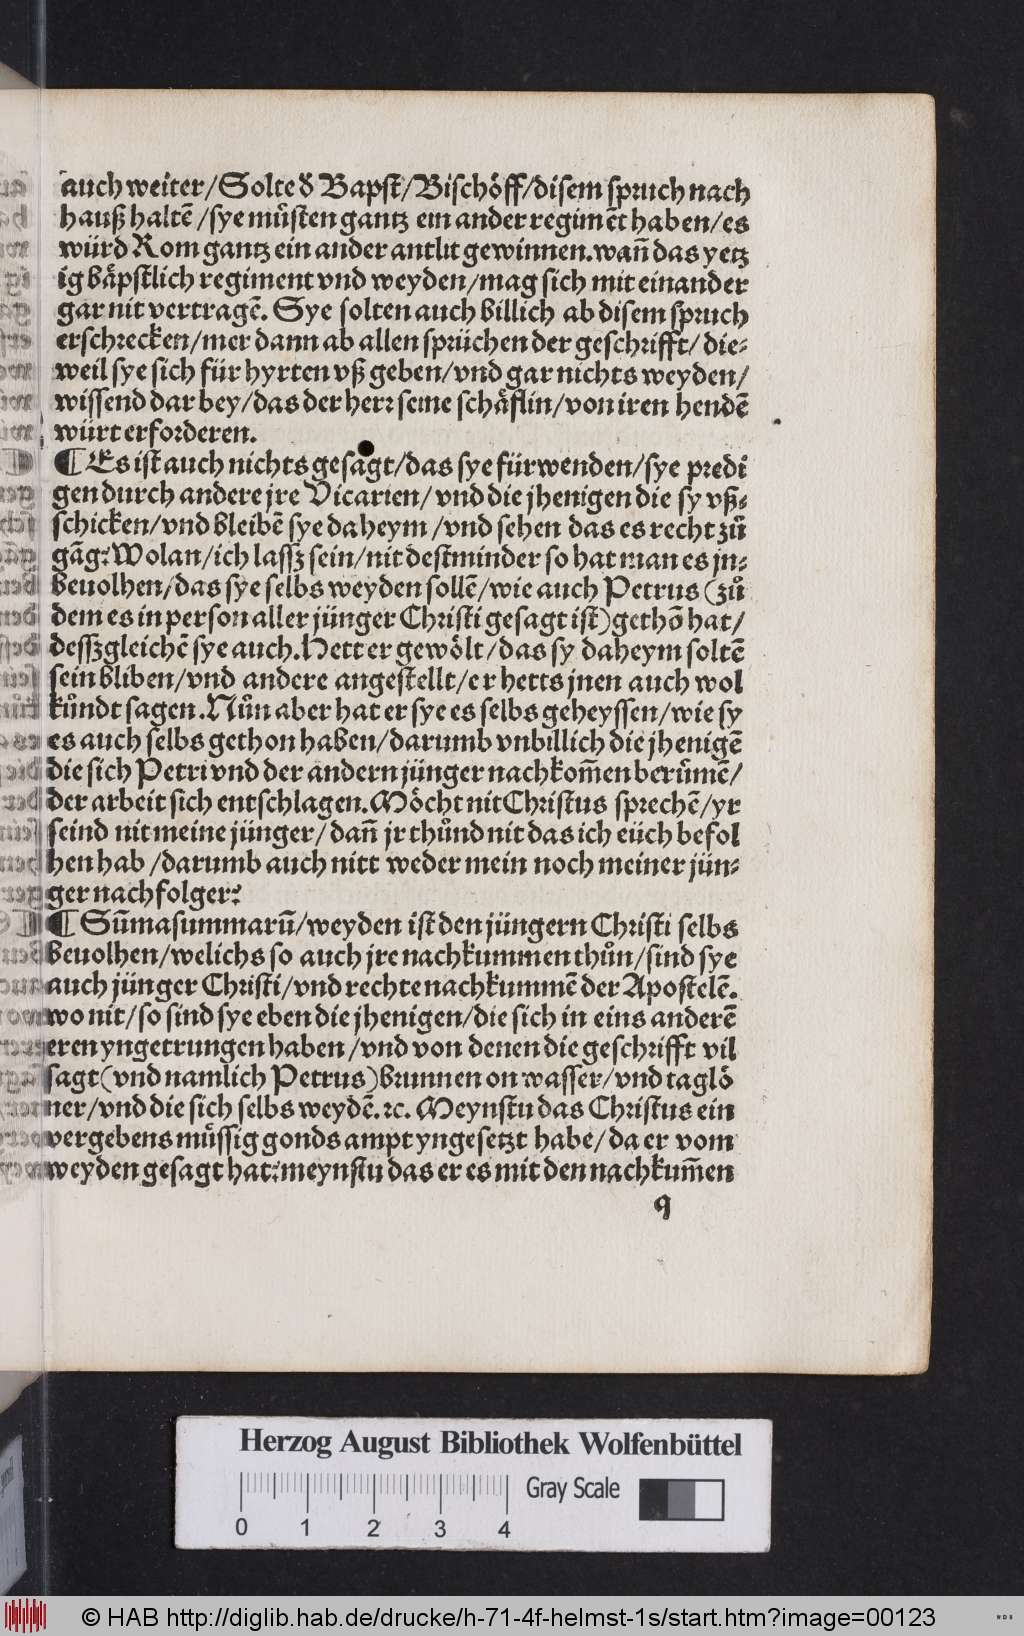 auch weiter/Solte d̕ Bapst/Bischöff/disem spruch nach
hauß haltē/sye müsten gantz ein ander regimēt haben/es
würd Rom gantz ein ander antlit gewinnen.wañ das yetz
ig bäpstlich regiment vnd weyden/mag sich mit einander
gar nit vertragē. Sye solten auch billich ab disem spruch
erschrecken/mer dann ab allen sprüchen der geschrifft/die⸗
weil sye sich für hyrten vß geben/vnd gar nichts weyden/
wissend dar bey/das der herr seine schäflin/von iren hendē
würt erforderen.
¶ Es ist auch nichts gesagt/das sye fürwenden/sye predi
gen durch andere jre Vicarien/vnd die jhenigen die sy vß⸗
schicken/vnd bleibē sye daheym/vnd sehen das es recht zů
gāg:Wolan/ich lassz sein/nit destminder so hat man es jn⸗
beuolhen/das sye selbs weyden sollē/wie auch Petrus (zů
dem es in person aller jünger Christi gesagt ist)gethō hat/
desszgleichē sye auch.Hett er gewölt/das sy daheym soltē
sein bliben/vnd andere angestellt/er hetts jnen auch wol
kůndt sagen.Nůn aber hat er sye es selbs geheyssen/wie sy
es auch selbs gethon haben/darumb vnbillich die jhenigē
die sich Petri vnd der andern jünger nachkom̄en berůmē/
der arbeit sich entschlagen.Möcht nit Christus sprechē/yr
seind nit meine jünger/dañ jr thůnd nit das ich eüch befol
hen hab/darumb auch nitt weder mein noch meiner jün⸗
ger nachfolger:
¶ Sūmasummarū/weyden ist den jüngern Christi selbs
beuolhen/welichs so auch jre nachkummen thůn/sind sye
auch jünger Christi/vnd rechte nachkummē der Apostelē.
wo nit/so sind sye eben die jhenigen/die sich in eins anderē
eren yngetrungen haben/vnd von denen die geschrifft vil
sagt(vnd namlich Petrus)brunnen on wasser/vnd taglö
ner/vnd die sich selbs weydē.ꝛc. Meynstu das Christus ein
vergebens müssig gonds ampt yngesetzt habe/da er vom
weyden gesagt hat:meynstu das er es mit den nachkum̄en
q
Herzog August Bibliothek Wolfenbüttel
Gray Scale
0 1 2 3 4
© HAB http://diglib.hab.de/drucke/h-71-4f-helmst-1s/start.htm?image=00123